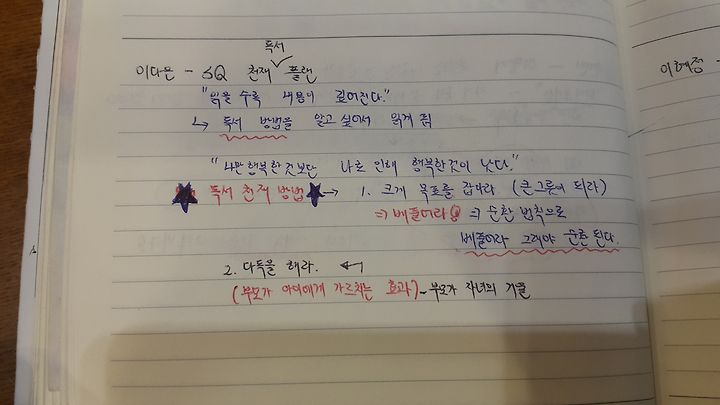 독서
이다은 - SQ 천재 플랜
"읽을 수록 내용이 깊어진다."
↳ 독서 방법을 알고 싶어서 읽게 됨
"나만 행복한 것보단 나로 인해 행복한것이 낫다."
★ 독서 천재 방법 ★ → 1. 크게 목표를 잡아라 (큰 그릇이 되라)
⇒ 베풀어라 ⇒ 순환 법칙으로
베풀어라 그래야 순환 된다.
2. 다독을 해라. ←
(부모가 아이에게 가르치는 효과) - 부모가 자녀의 거울
이혜정 -